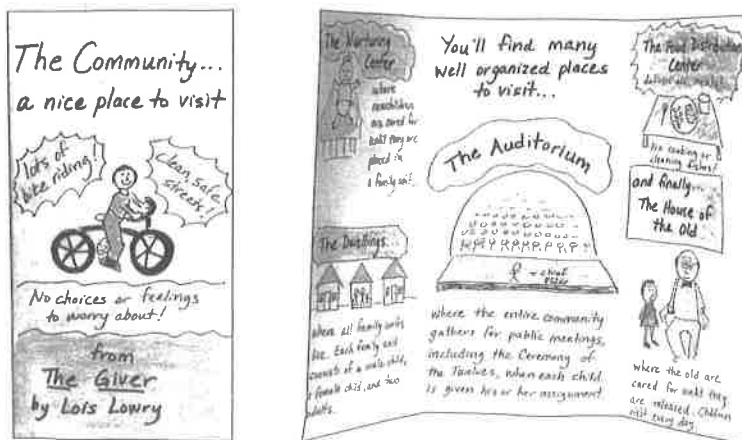 The Community...
a nice place to visit
lots of
bike riding!
clean, safe
streets!
No choices or feelings
to worry about!
from
The Giver
by Lois Lowry
The Nurturing
Center
where
newchildren
are cared for
until they are
placed in
a family unit.
The Dwellings...
where all family units
live. Each family unit
consists of a male child,
a female child, and two
adults.
You'll find many
well organized places
to visit...
The Auditorium
chief
Elder
where the entire community
gathers for public meetings,
including the Ceremony of
the Twelves, when each child
is given his or her assignment
The Food Distribution
Center
delivers all meals!
No cooking or
cleaning dishes!
and finally...
The House of
the Old
where the old are
cared for until they
are released. Children
visit every day.